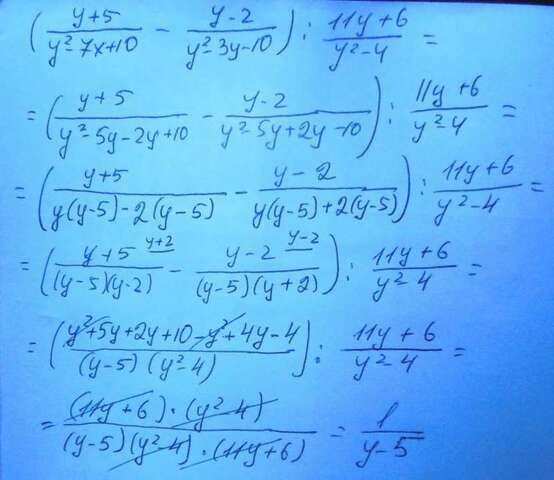 (y+5/y²-7x+10 - y-2/y²-3y-10) : 11y+6/y²-4 =
= (y+5/y²-5y-2y+10 - y-2/y²-5y+2y-10) : 11y+6/y²-4 =
= (y+5/y(y-5)-2(y-5) - y-2/y(y-5)+2(y-5)) : 11y+6/y²-4 =
= (y+5 y+2/(y-5)(y-2) - y-2 y-2/(y-5)(y+2)) : 11y+6/y²-4 =
= (y²+5y+2y+10-y²+4y-4/(y-5)(y²-4)) : 11y+6/y²-4 =
= (11y+6)·(y²-4)/(y-5)(y²-4)·(11y+6) = 1/y-5